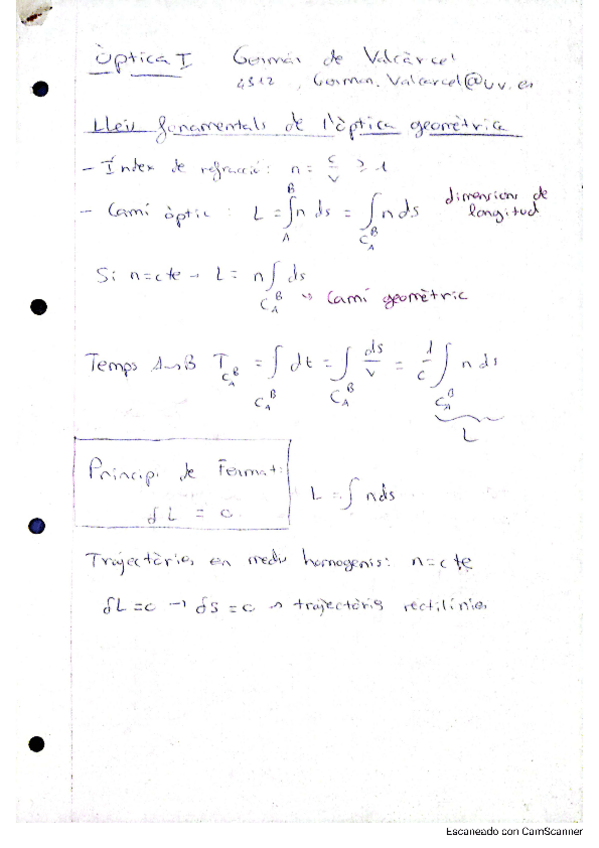 Òptica I Germán de Valcárcel
4312, German.Valcarcel@uv.es
Lleis fonamentals de l'òptica geomètrica
- Índex de refracció: n = c/v ≥ 1
- Camí òptic: L = ∫_A^B n ds = ∫_{C_A^B} n ds dimensions de longitud
Si n=cte → L = n ∫_{C_A^B} ds ⇝ Camí geomètric
Temps A⇝B T_{C_A^B} = ∫_{C_A^B} dt = ∫_{C_A^B} ds/v = 1/c ∫_{C_A^B} n ds
L
Principi de Fermat:
δL = 0
L = ∫ n ds
Trajectòries en medis homogenis: n=cte
δL = 0 → δs = 0 ⇝ trajectòries rectilínies
Escaneado con CamScanner